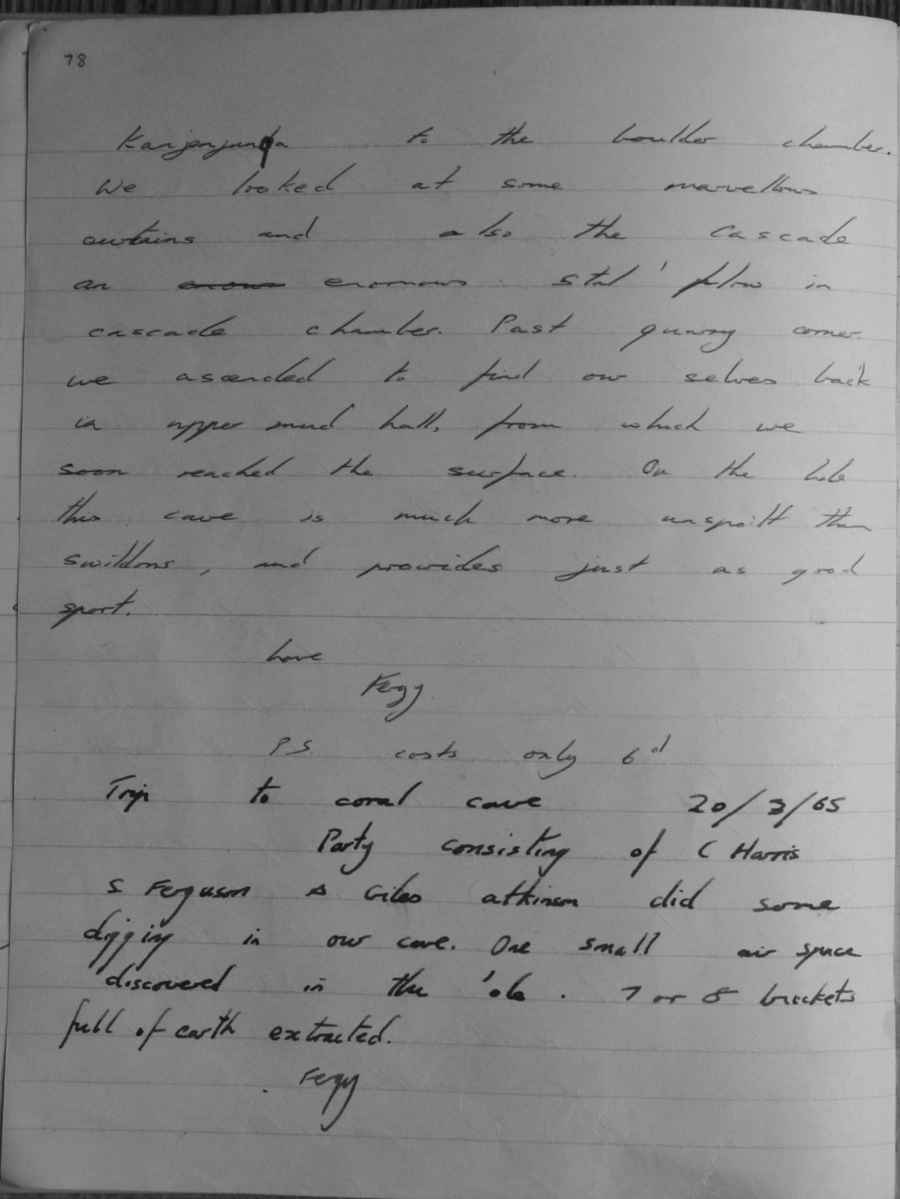 78
Kanjenjunga to the boulder chamber.
We looked at some marvellous
curtains and also the Cascade
an enormous stal' flow in
cascade chamber. Past quarry corner.
we ascended to find our selves back
in upper mud hall, from which we
soon reached the surface. On the hole
this cave is much more unspoilt than
swildons, and provides just as good
sport.
love
Fergy.
PS costs only 6d
Trip to coral cave 20/3/65
Party consisting of C Harris
S Ferguson & Giles atkinson did some
digging in our cave. One small air space
discovered in the 'ole. 7 or 8 buckets
full of earth extracted.
Fergy